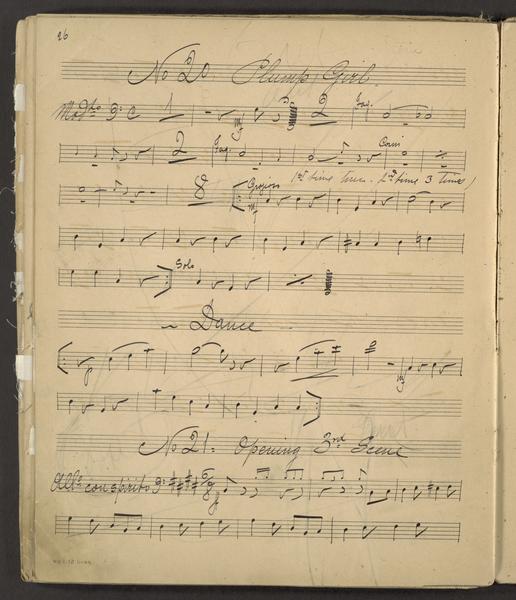 26
No 20. Plump Girl.
Modto 1 mf 2 Fag.
2 Fag. Corni
8 1st time twice. 2nd time 3 times
mf
Solo
Dance
p mf
No 21. Opening 3rd Scene
Allo con spirito